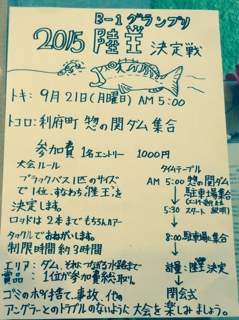 B-1グランプリ
2015 陸王 決定戦
トキ: 9月21日(月曜日) AM 5:00
トコロ: 利府町 惣の関ダム集合
参加費 1名エントリー 1000円
大会ルール
ブラックバス1匹のサイズ
で1位、すなわち「陸王」を
決定します。
ロッドは2本まで もちろんルアー
タックルでおねがいします。
制限時間 約3時間
タイムテーブル
AM 5:00 惣の関ダム
駐車場集合
5:30 スタート
8:00 駐車場に集合
計量: 陸王 決定
閉会式
エリア: ダム、それにつながる水路まで
賞品: 1位が参加費総取り
ゴミのポイ捨て、事故、他の
アングラーとのトラブルのないように大会を楽しみましょう。